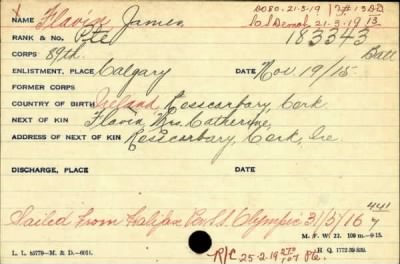 DOSO.21.3.19
C.I. Demob 21-3-19 13
NAME Flavin James
RANK & No. Pte 183343
CORPS 89th Batt
ENLISTMENT, PLACE Calgary DATE Nov 19/15
FORMER CORPS
COUNTRY OF BIRTH Ireland, Rosscarbary, Cork.
NEXT OF KIN Flavin, Mrs. Catherine,
ADDRESS OF NEXT OF KIN Rosscarbary, Cork, Ire
DISCHARGE, PLACE DATE
Sailed from Halifax Per S.S. Olympic 31/5/16 441/7
M. F. W. 22. 100 m.-9-15.
L. L. 85779-M. & D.-6051. H. Q. 1772-39-839.
R/C 25-2-19 Pte.